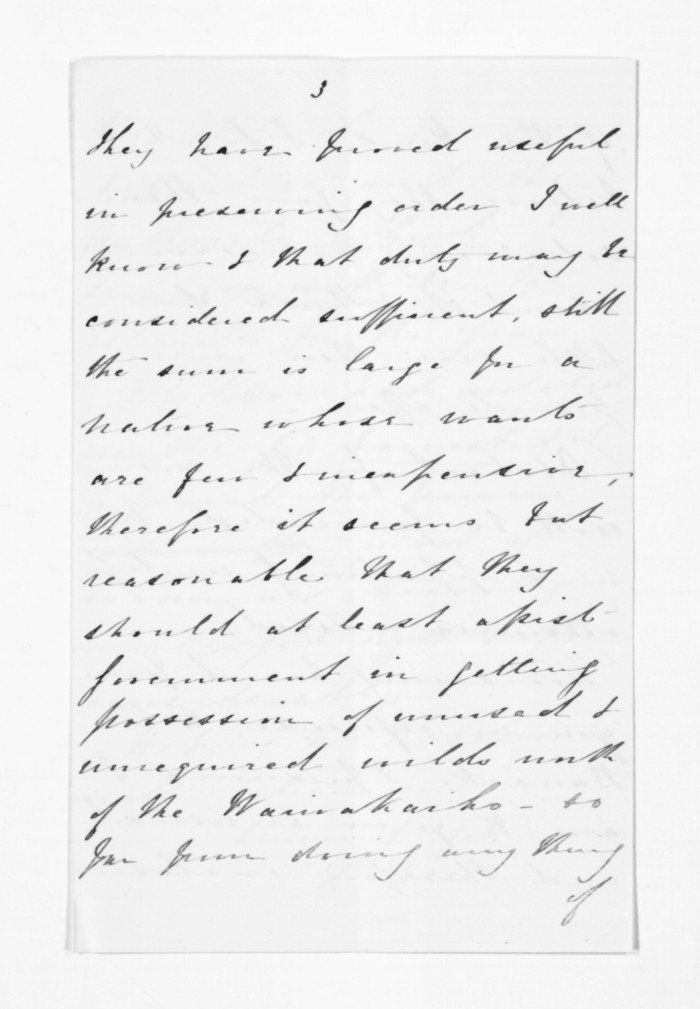 3
they have proved useful
in preserving order I well
know & that duty may be
considered sufficient, still
the sum is large for a
native whose wants
are few & inexpensive,
therefore it seems but
reasonable that they
should at least assist
Government in getting
possession of unused &
unrequired wilds north
of the Waiwakaiho - so
far from doing any thing
of